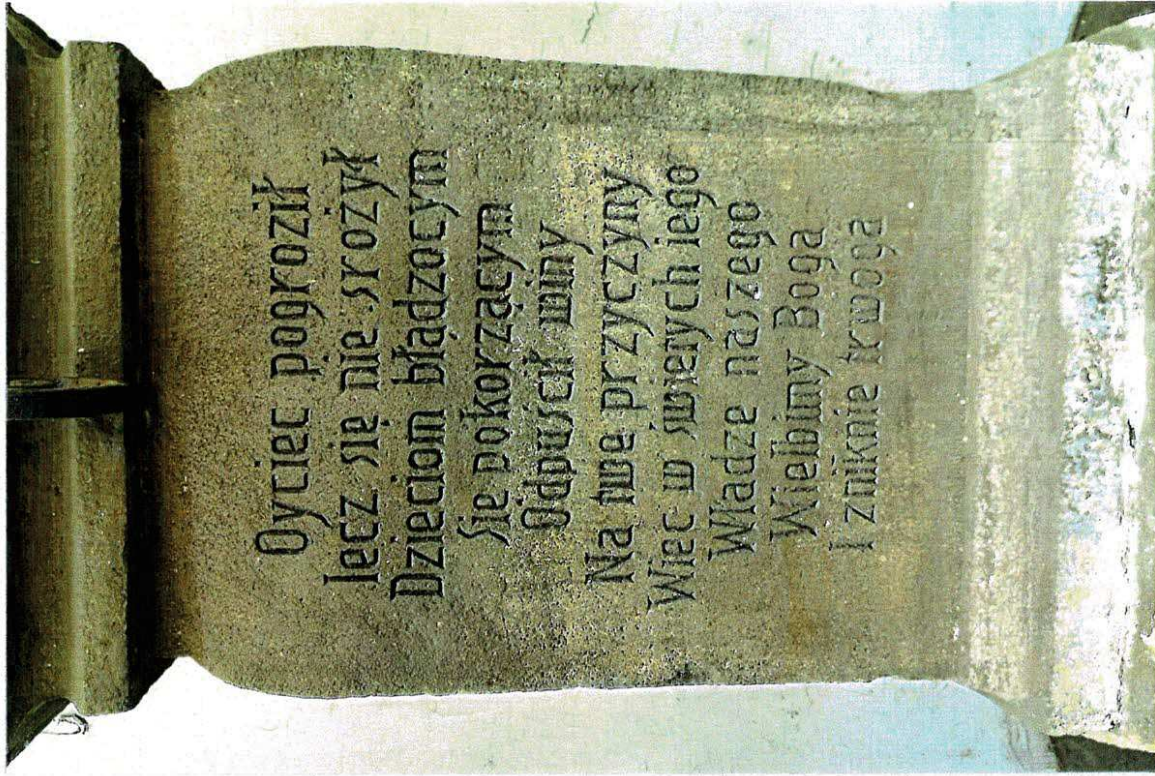 Oyciec pogroził
lecz się nie srożył
Dzieciom błądzocym
Sie pokorzącym
Odpuścił winy
Na twe przyczyny
Wiec w świetych iego
Wladze naszego
Wielbimy Boga
I zniknie trwoga